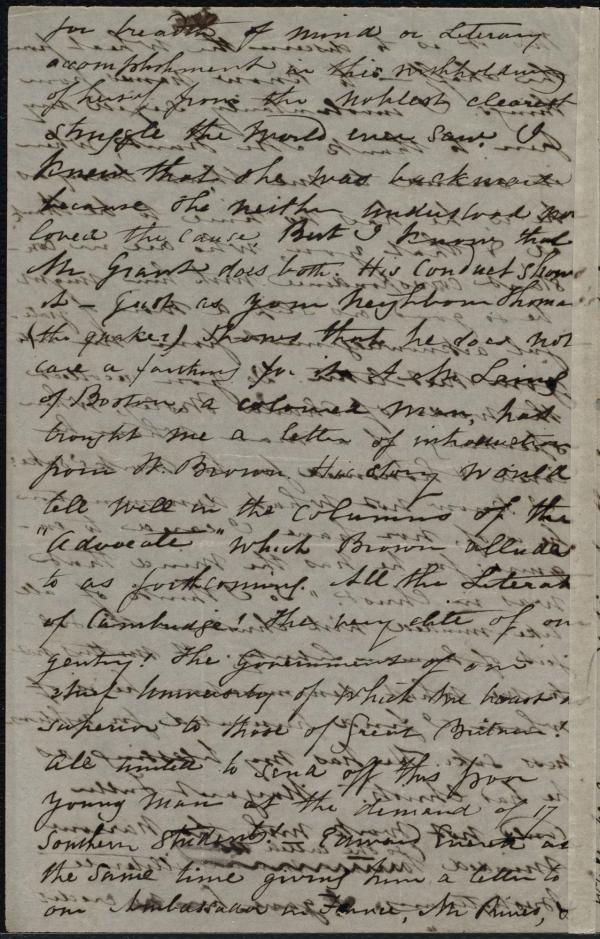 for breadth of mind or Literary
accomplishment in this withholding
of herself from the noblest clearest
struggle the World ever saw. I
knew that she was backward
because she neither understood nor
loved the cause. But I know that
Mr Grant does both. His conduct shows
it - Just as your neighbour Thomas
(the quaker) shows that he does not
care a farthing for it. A Mr Laing
of Boston, a colored man, has
brought me a letter of introduction
from W. Brown. His story would
tell well in the columns of the
"Advocate" which Brown alludes
to as forthcoming. All the Literati
of Cambridge! The very elite of our
gentry! The government of our
chief University of which we boast as
superior to those of Great Britain!
All united to send off this poor
young man at the demand of 17
Southern Students! Edward Everett at
the same time giving him a letter to
our Ambassador in France, Mr Rives, &